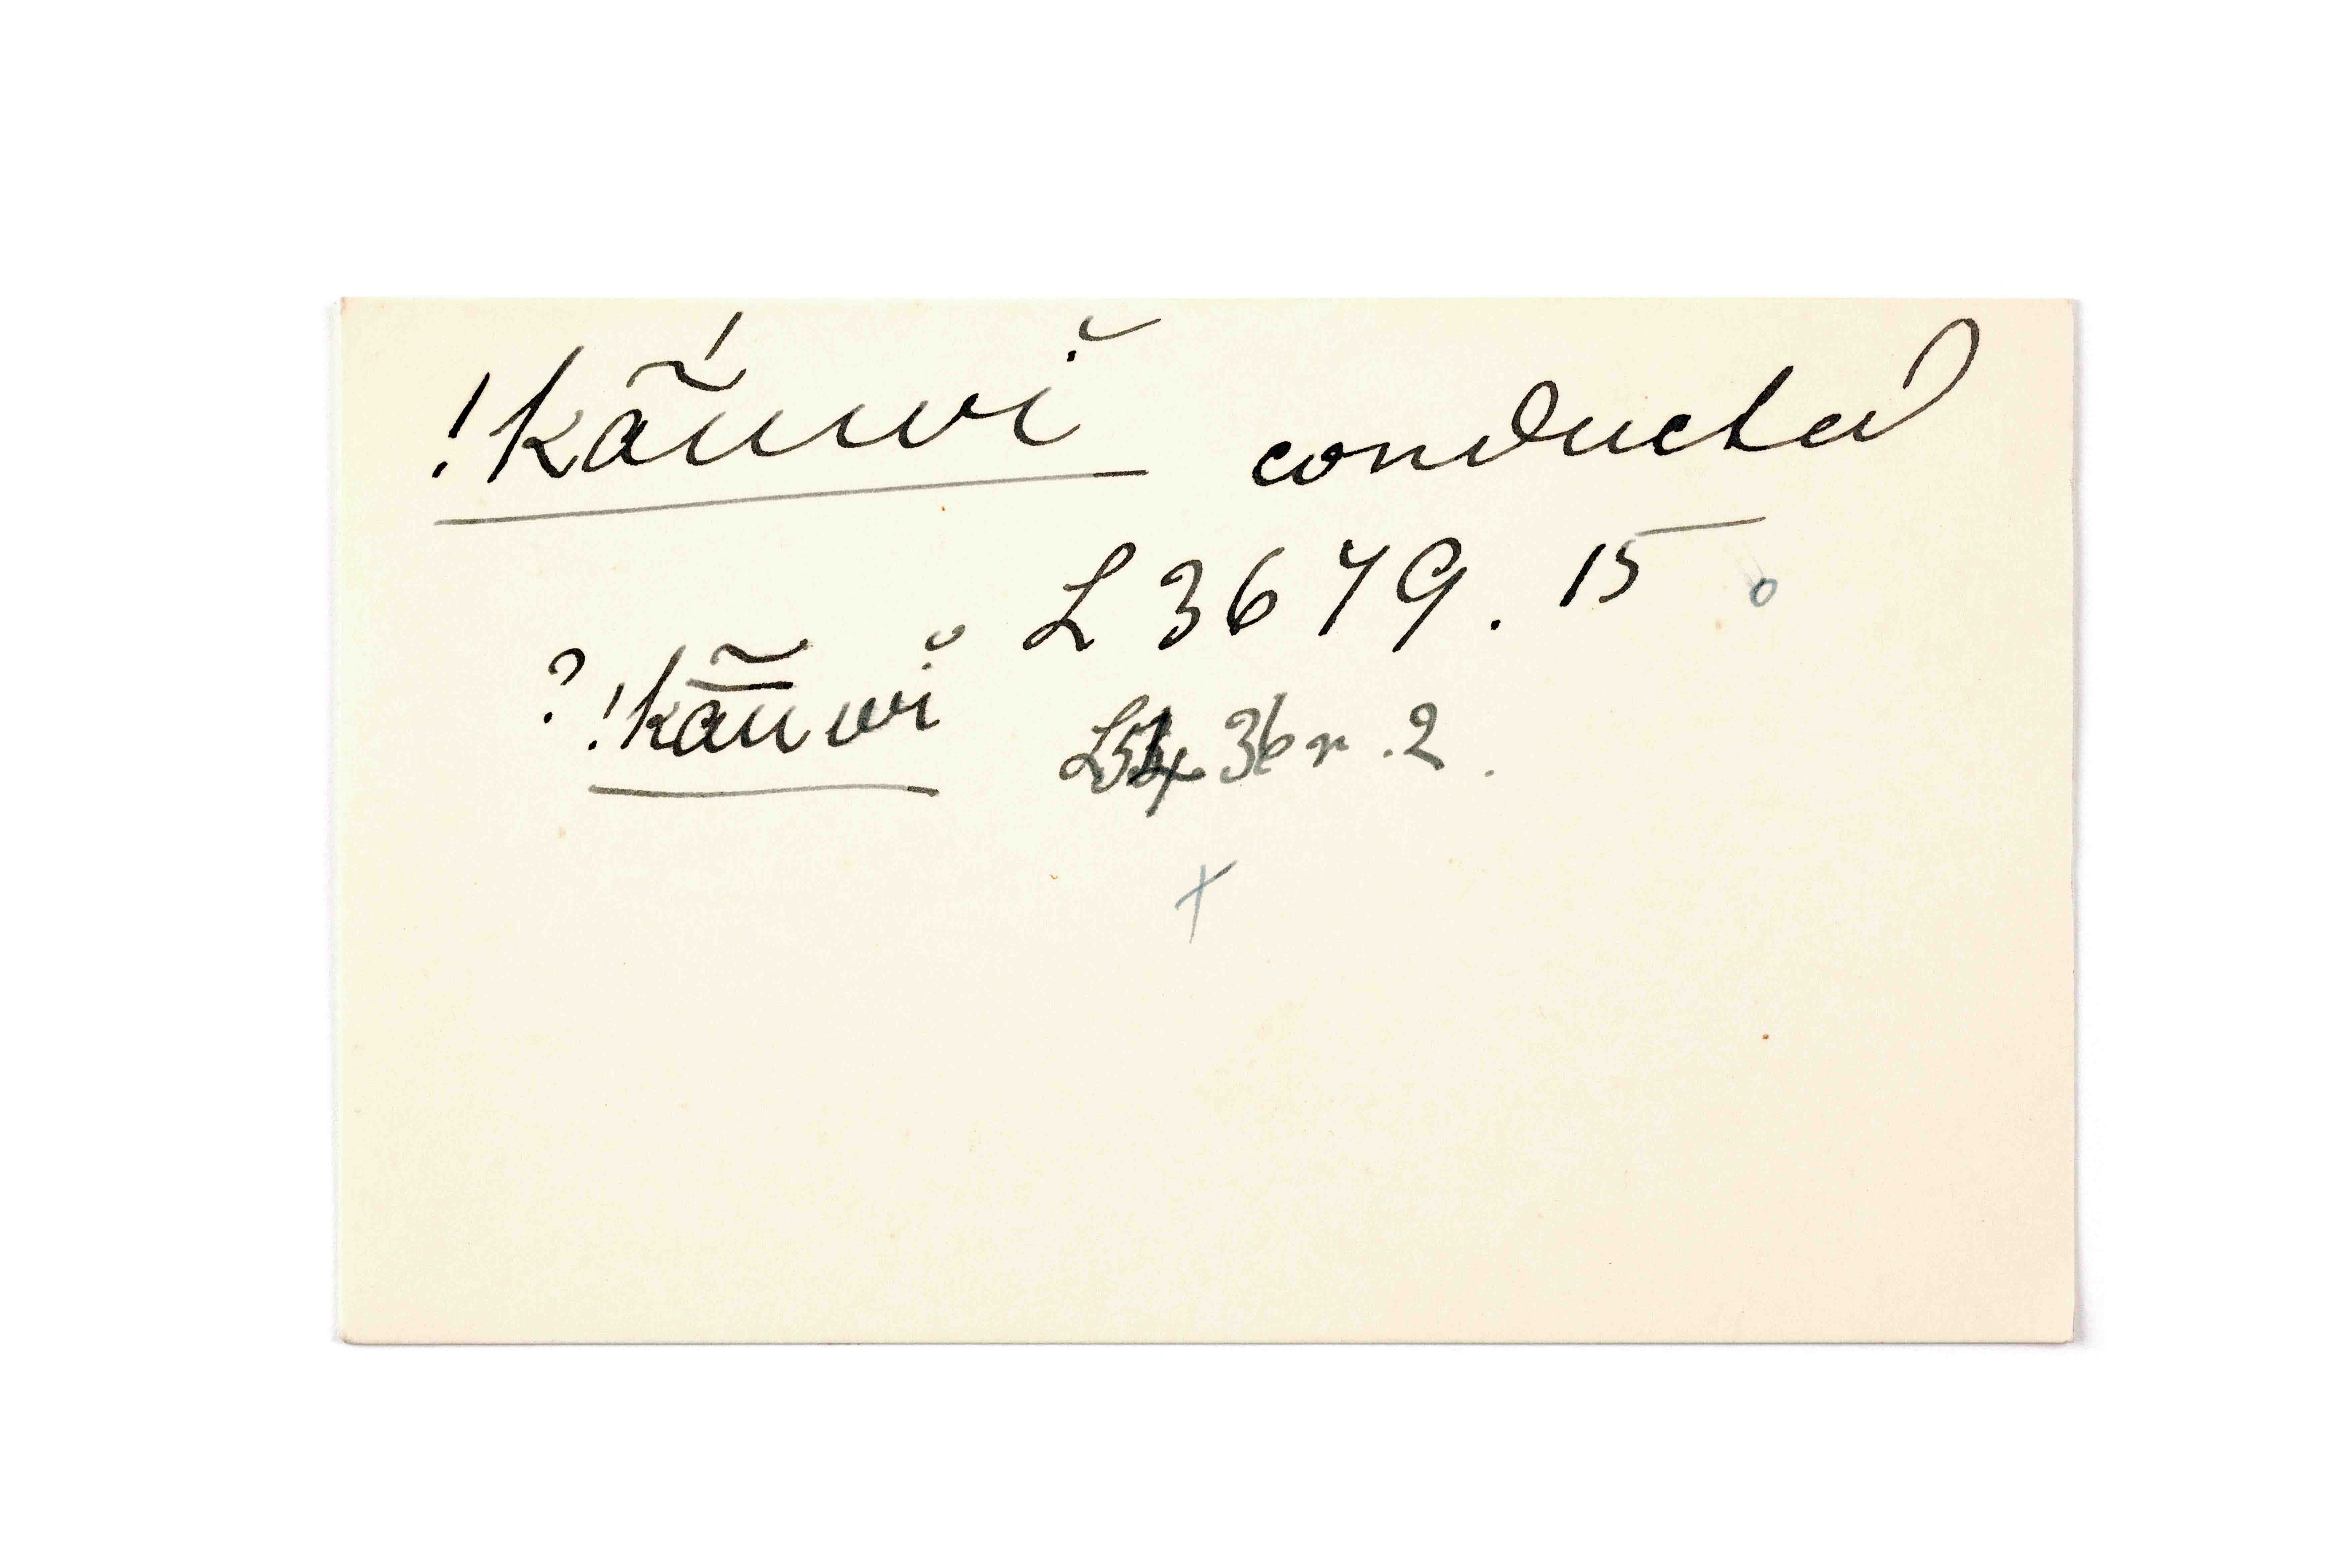 !kã́uwĭ conducted
L 3679. 15
? !kã̄uwĭ L 36 r .2.